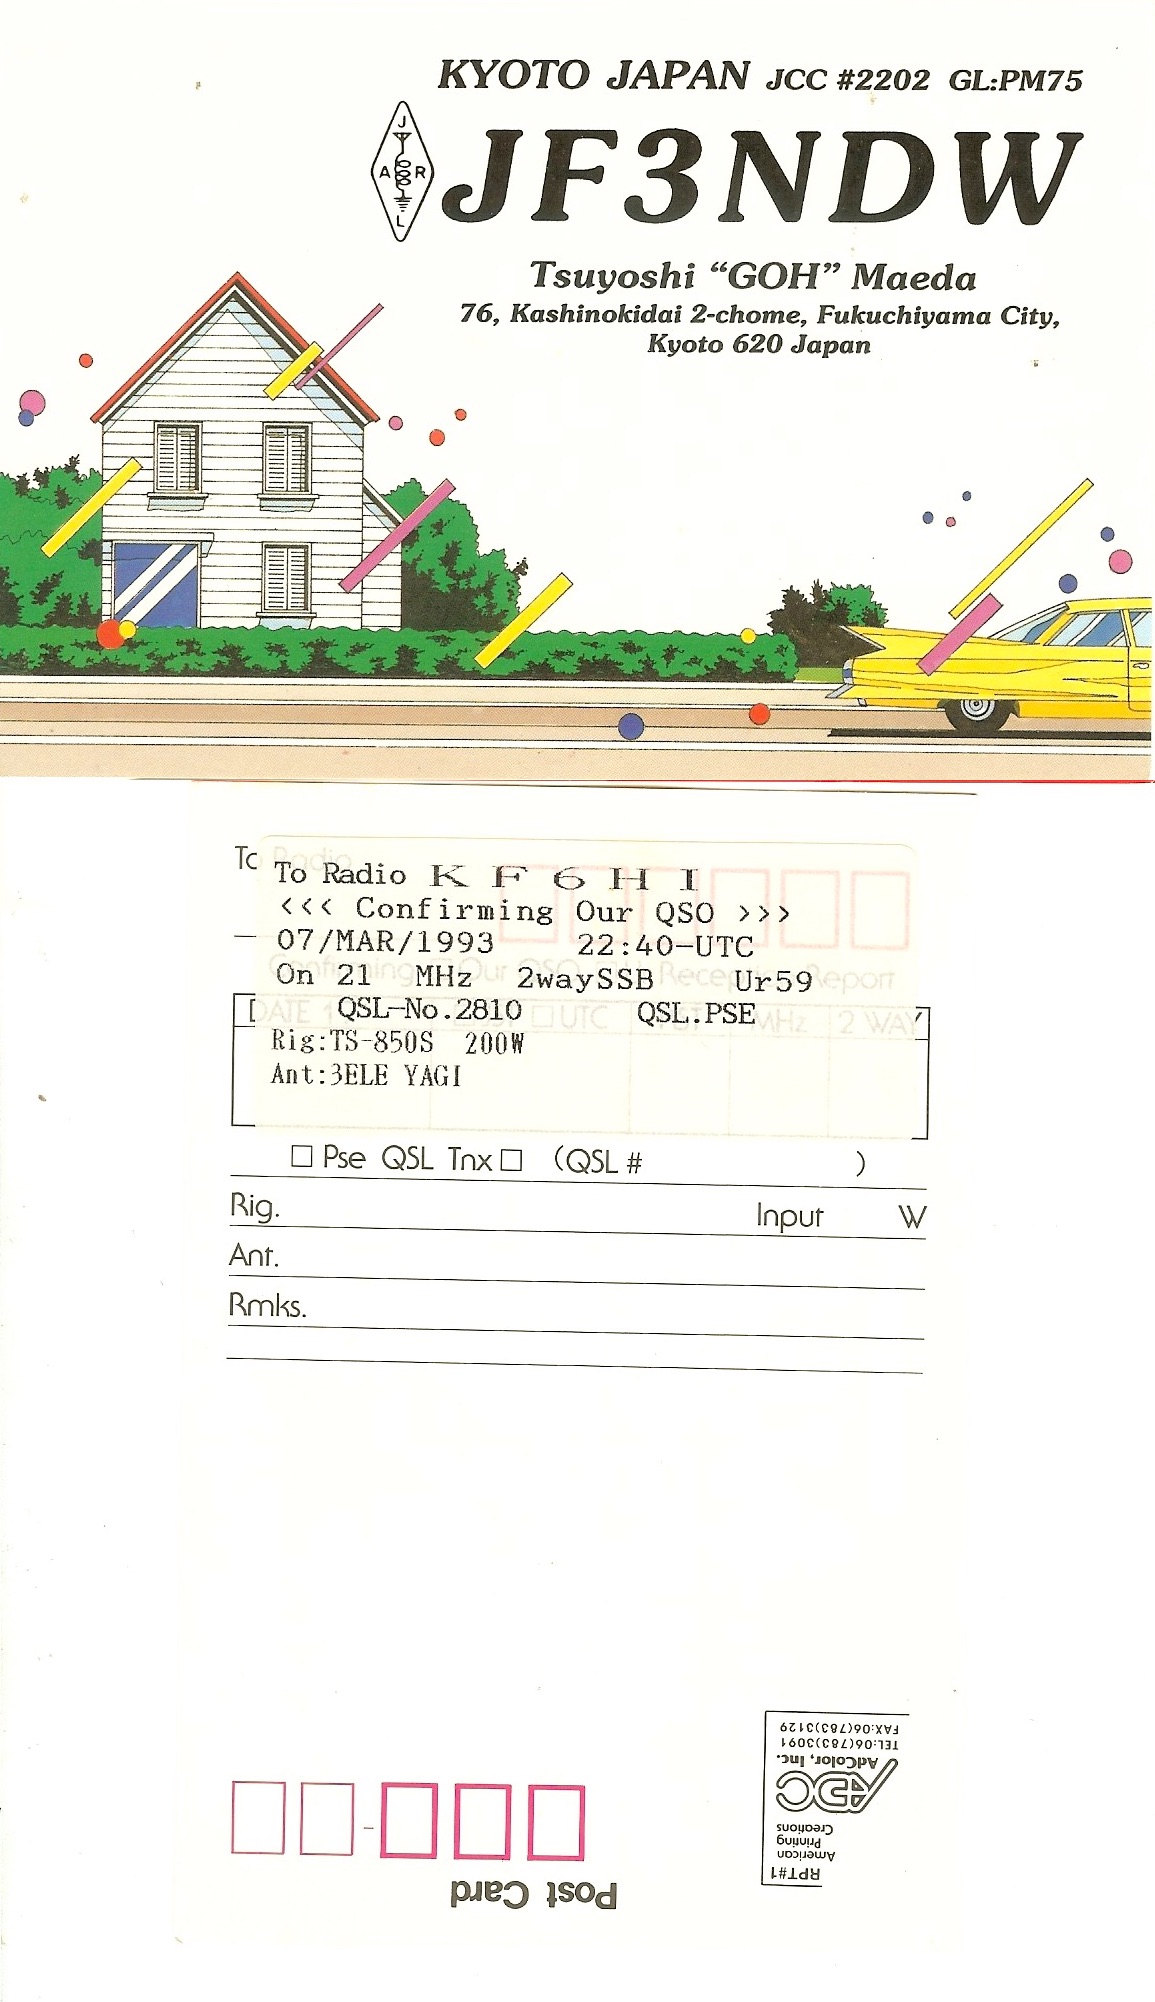 KYOTO JAPAN JCC #2202 GL:PM75
J
A R
L
JF3NDW
Tsuyoshi “GOH” Maeda
76, Kashinokidai 2-chome, Fukuchiyama City,
Kyoto 620 Japan
To Radio
To Radio KF6HI
<<< Confirming Our QSO >>>
07/MAR/1993 22:40-UTC
Confirming □Our QSO Reception Report
On 21 MHz 2waySSB Ur59
QSL-No.2810 QSL.PSE
DATE □UTC MHz 2 WAY
Rig:TS-850S 200W
Ant:3ELE YAGI
□ Pse QSL Tnx □ (QSL # )
Rig. Input W
Ant.
Rmks.
Post Card
RPT#1
American
Printing
Creations
ADC
AdColor, Inc.
TEL:06(783)3091
FAX:06(783)3129